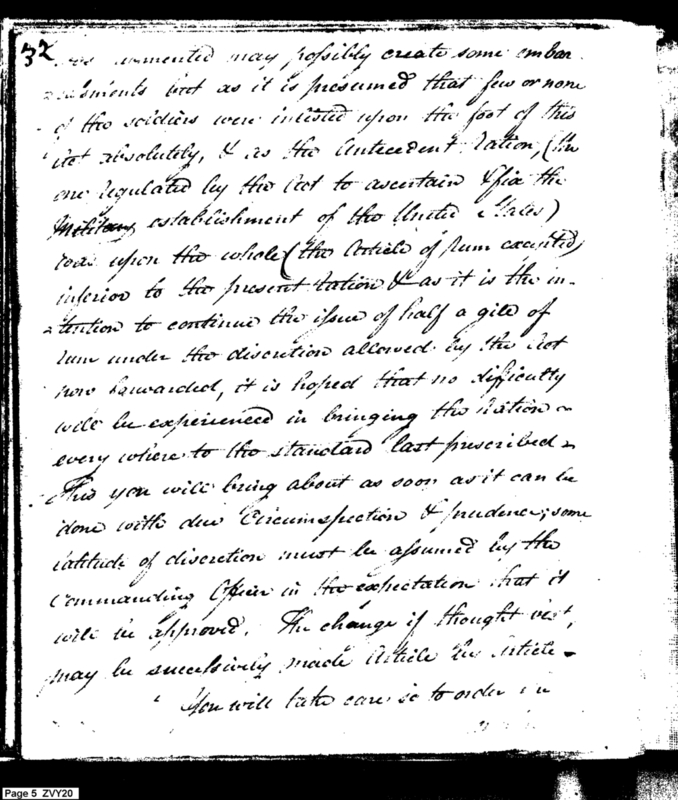 32
augmented may possibly create some embar
-rassments but as it is presumed that few or none
of the soldiers were inlisted upon the foot of this
Act absolutely, & as the Antecedent Ration, (the
one regulated by the Act to ascertain & fix the
Military establishment of the United States)
was upon the whole (the Article of rum excepted)
inferior to the present ration & as it is the in-
-tention to continue the issue of half a gill of
rum under the discretion allowed by the Act
now forwarded, it is hoped that no difficulty
will be experienced in bringing the Ration
every where to the standard last prescribed -
This you will bring about as soon as it can be
done with due Circumspection & prudence; some
latitude of discretion must be assumed by the
Commanding Officer in the expectation that it
will be approved. The change if thought best,
may be successively made Article by Article -
You will take care so to order
Page 5 ZVY20